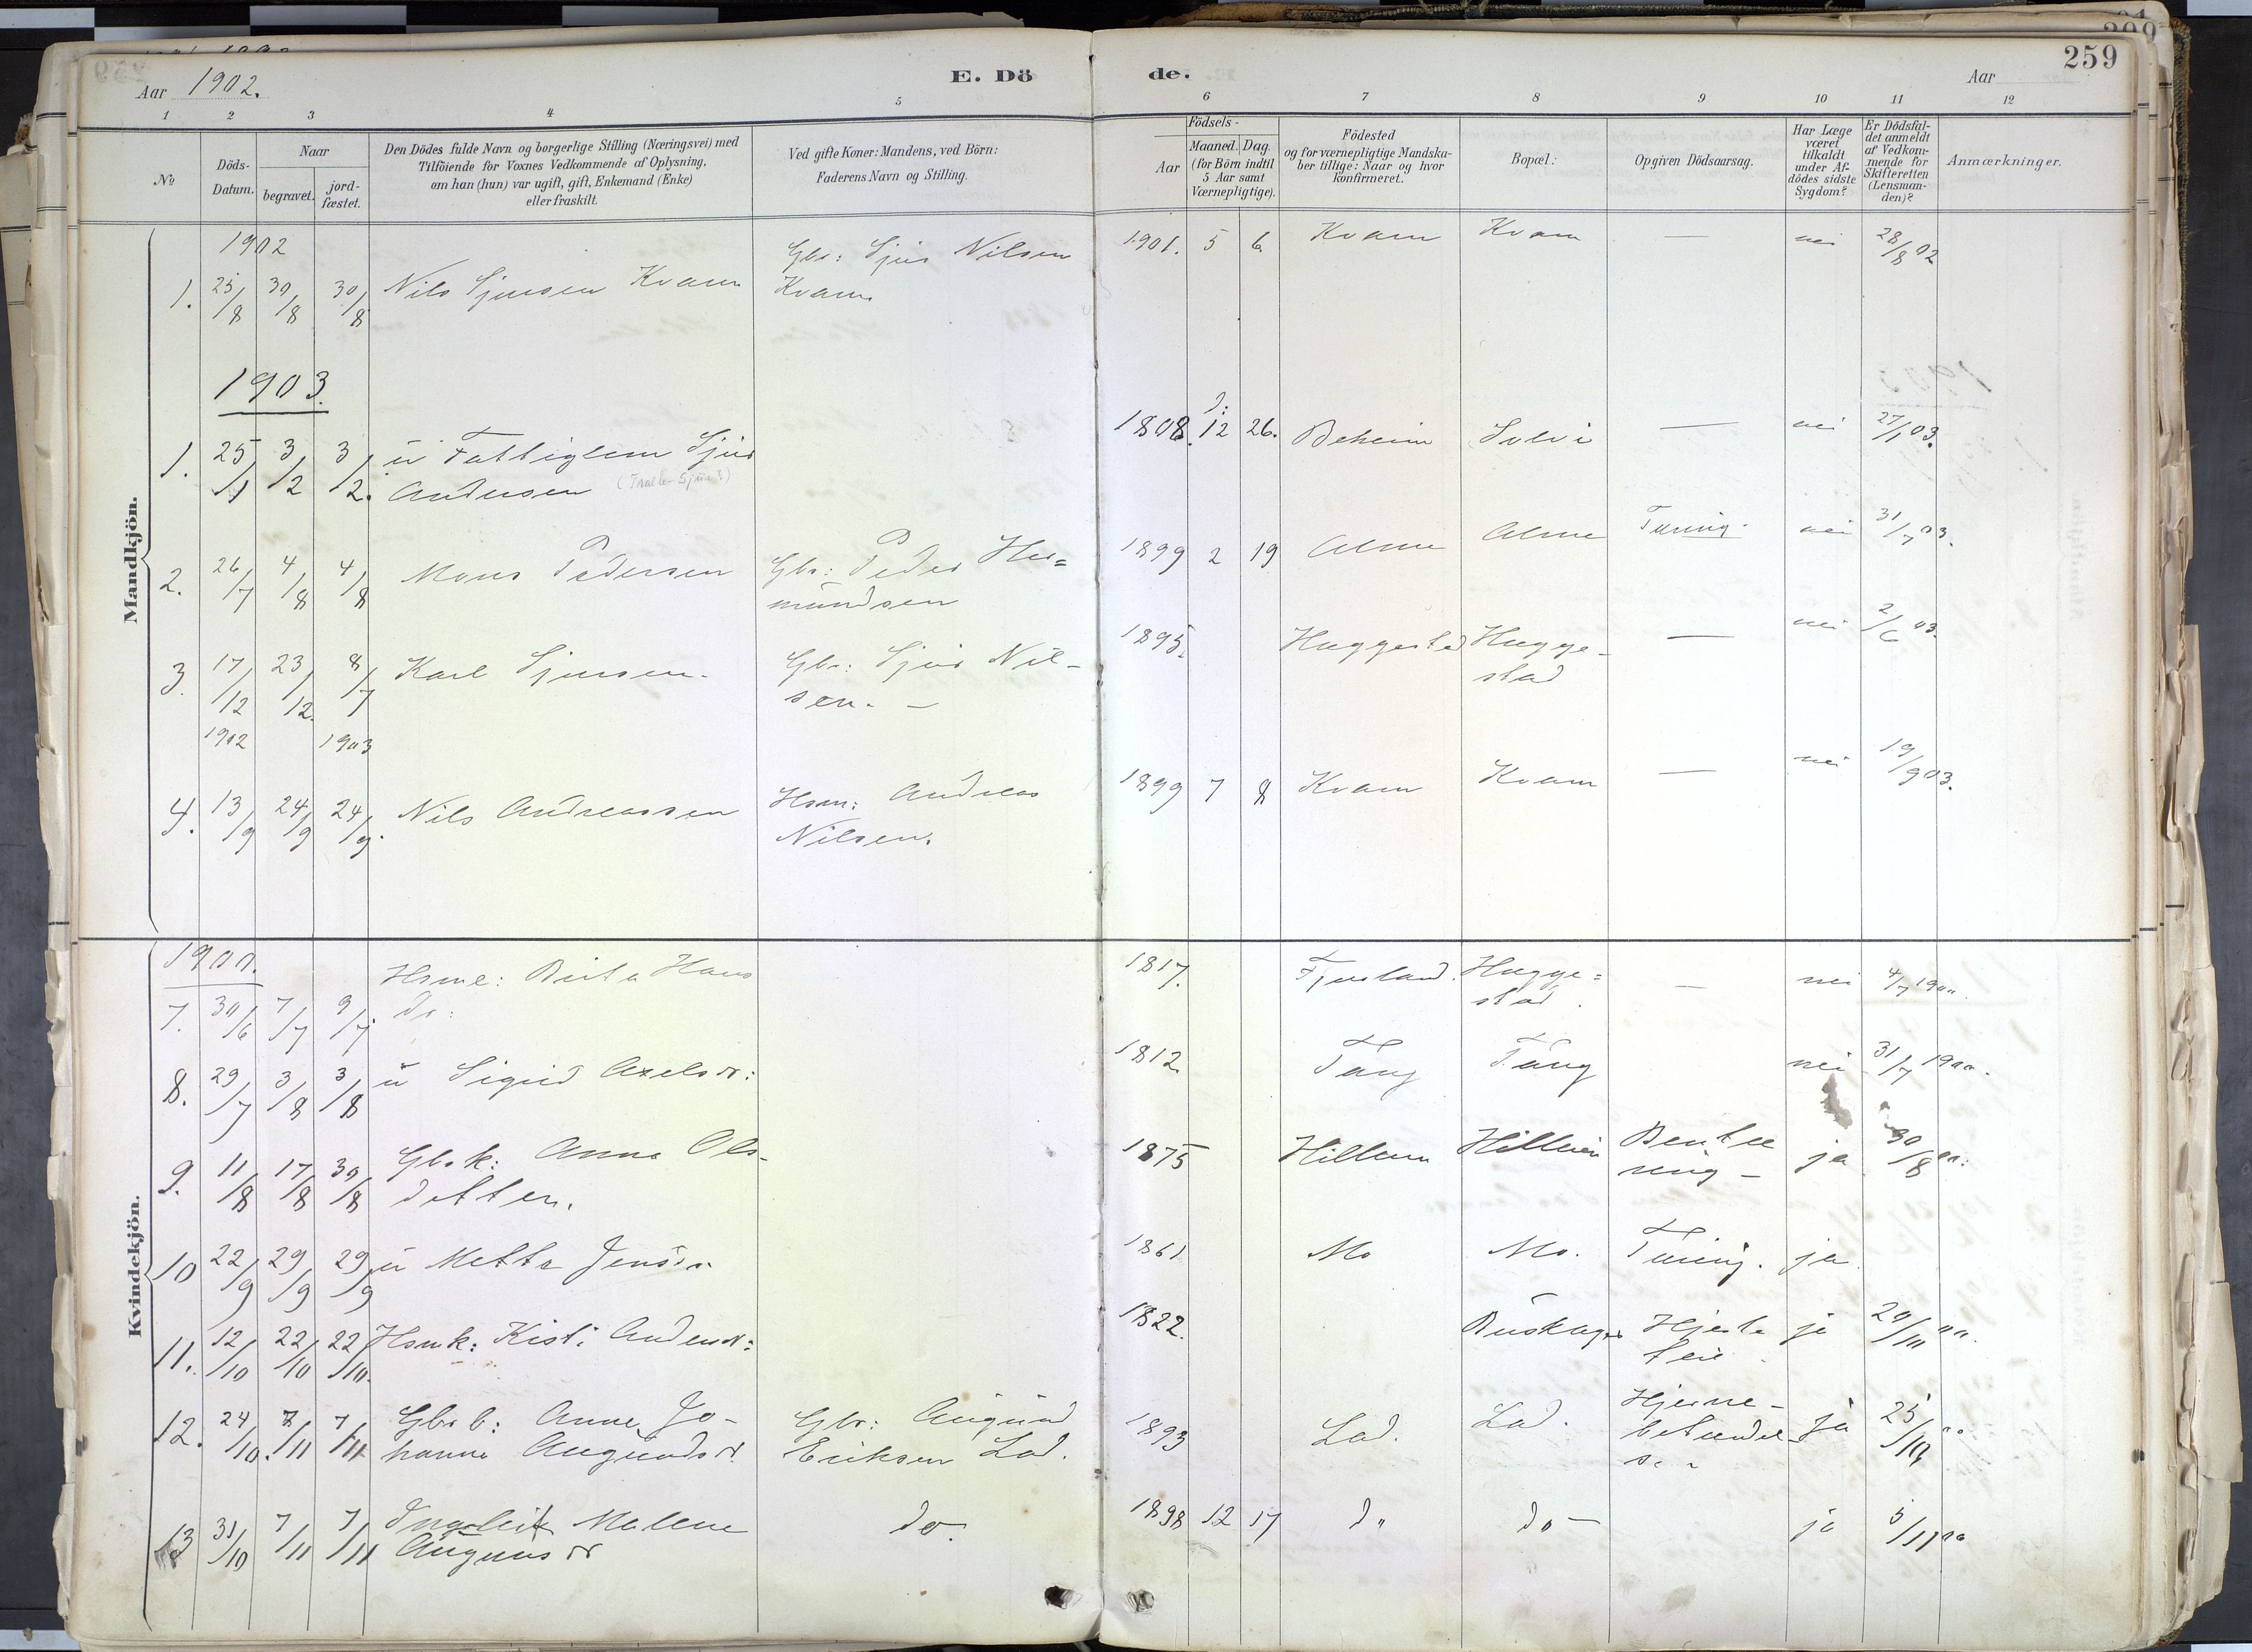 259
Aar 1902.
E. Dö
de.
Aar
1 2 3 4 5 6 7 8 9 10 11 12
No
Döds-
Datum.
Naar
begravet.
jord-
fæstet.
Den Dödes fulde Navn og borgerlige Stilling (Næringsvei) med
Tilföiende for Voxnes Vedkommende af Oplysning,
om han (hun) var ugift, gift, Enkemand (Enke)
eller fraskilt.
Ved gifte Koner: Mandens, ved Börn:
Faderens Navn og Stilling.
Födsels-
Aar
Maaned. Dag.
(for Börn indtil
5 Aar samt
Værnepligtige).
Födested
og for værnepligtige Mandska-
ber tillige: Naar og hvor
konfirmeret.
Bopæl.:
Opgiven Dödsaarsag.
Har Læge
været
tilkaldt
under Af-
dödes sidste
Sygdom?
Er Dödsfal-
det anmeldt
af Vedkom-
mende for
Skifteretten
(Lensman-
den)?
Anmærkninger.
Mandkjön.
1902
1. 25/8 30/8 30/8 Nils Sjursen Kvam
Gbr: Sjur Nilsen
Kvam
1901. 5 6. Kvam Kvam — nei 28/8 02
1903.
1. 25/1 3/2 3/2. ü Fattiglem Sjur
Andersen
1808. 12 26. Solvi — nei 27/1 03.
2. 26/7 4/8 4/8 Mons Pedersen
Gbr: Peder Her=
mundsen
1899 2 19 Alme Alme Tæring. nei 31/7 03.
3. 17/12 23/12. 8/7 Karl Sjursen.
1902 1903
Gbr: Sjur Nil-
sen. —
1895. Huggestad Hugge-
stad — nei 2/6 03.
4. 13/9 24/9 24/9. Nils Andreassen
Hsm: Andreas
Nilsen.
1899 7 8 Kvam Kvam — nei 19/9 03.
Kvindekjön.
1900.
7. 30/6 7/7 9/7. Hsme: Brita Hans
dr:
1817. Fjærland. Hugge=
stad. — nei 4/7 1900.
8. 29/7 3/8 3/8 ü Sigrid Axelsdr:
1812. Tang Tang nei 31/7 1900.
9. 11/8 17/8 30/8 Gbrk: Anna Ols-
datter.
1875 ja 30/8 00.
10 22/9 29/9 29/9 ü Metta Jensdr.
1861 Mo Mo. Tæring. ja.
11. 12/10 22/10 22/10. Hsmk: Kisti Andersdr:
1822. Buskager Hjerte
feil. ja 20/11 00.
12. 24/10. 7/11 7/11 Gbrb: Anne Jo-
hanna Augundsdr.
Gbr: Augund
Eriksen Lad.
1893 Lad. Lad. Hjerne-
betændel-
se. ja 25/10 00
13 31/10 7/11 7/11 Ingaleik Malene
Augunsdr
do.
1898 12 17 do do — ja 5/11 00